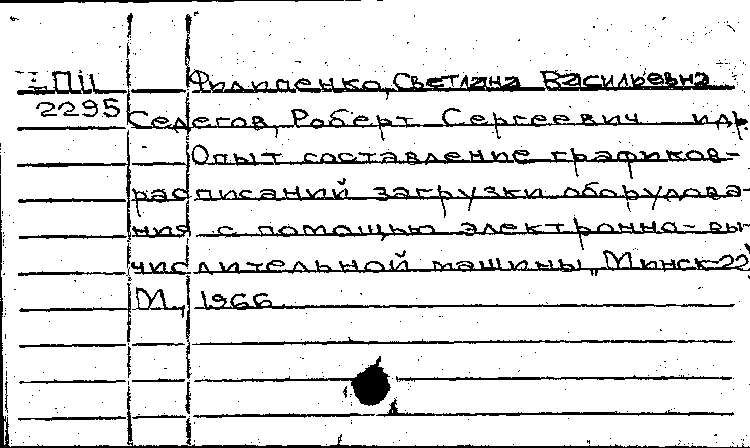 ПII Филипенко, Светлана Васильевна
2295 Седегов, Роберт Сергеевич и др
Опыт составление графиков-
расписаний загрузки оборудова-
ния с помощью электронно-вы-
числительной машины „Минск-22"
М, 1966